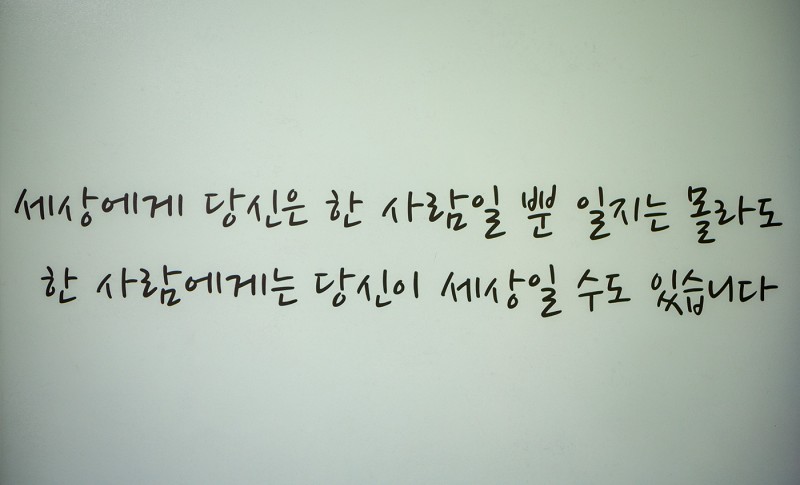 세상에게 당신은 한 사람일 뿐 일지는 몰라도
한 사람에게는 당신이 세상일 수도 있습니다